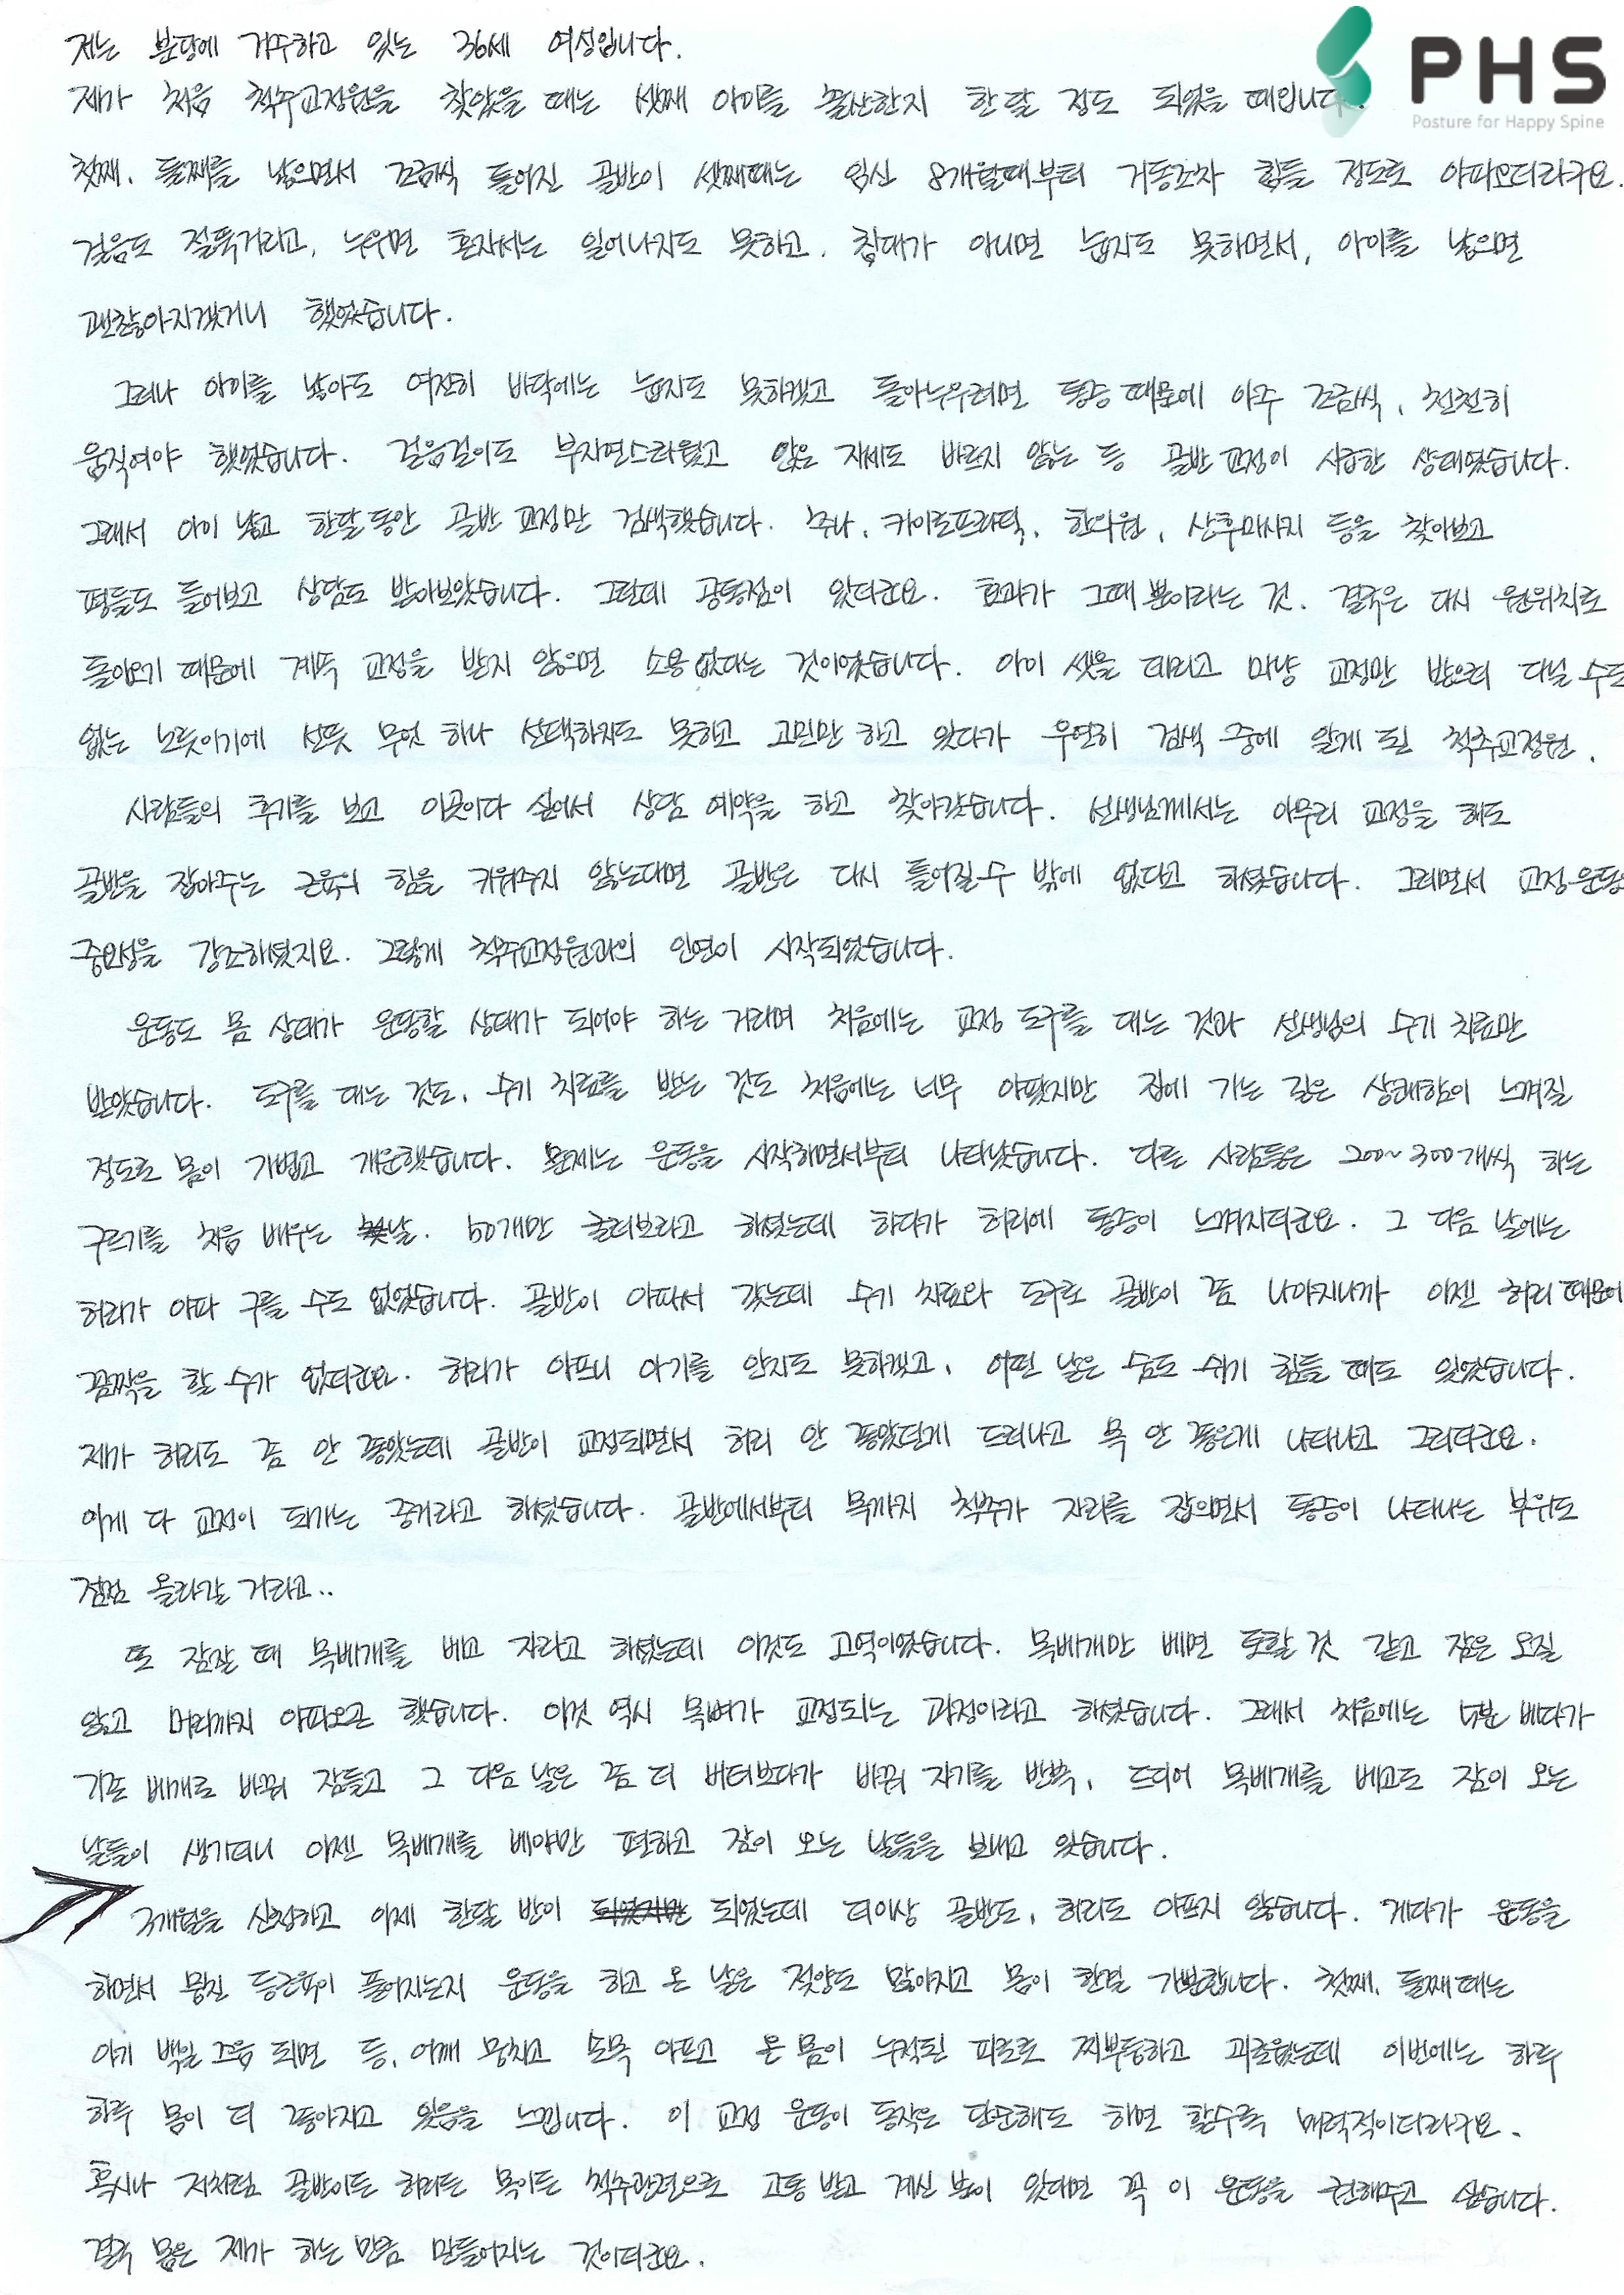 PHS
Posture for Happy Spine
저는 분당에 거주하고 있는 36세 여성입니다.
제가 처음 척추교정원을 찾았을 때는 셋째 아이를 출산한지 한달 정도 되었을 때입니다.
첫째, 둘째를 낳으면서 조금씩 틀어진 골반이 셋째때는 임신 8개월때부터 거동조차 힘들 정도로 아파오더라구요.
걸음도 절뚝거리고, 누우면 혼자서는 일어나지도 못하고, 침대가 아니면 눕지도 못하면서, 아이를 낳으면
괜찮아지겠거니 했었습니다.
그러나 아이를 낳아도 여전히 바닥에는 눕지도 못하겠고 돌아누우려면 통증 때문에 아주 조금씩, 천천히
움직여야 했었습니다. 걸음걸이도 부자연스러웠고 앉은 자세도 바르지 않는 등 골반 교정이 시급한 상태였습니다.
그래서 아이 낳고 한달 동안 골반 교정만 검색했습니다. 추나, 카이로프락틱, 한의원, 산후마사지 등을 찾아보고
평들도 들어보고 상담도 받아보았습니다. 그런데 공통점이 있더군요. 효과가 그때 뿐이라는 것. 결국은 다시 원위치로
돌아오기 때문에 계속 교정을 받지 않으면 소용없다는 것이었습니다. 아이 셋을 데리고 마냥 교정만 받으러 다닐 수도
없는 노릇이기에 선뜻 무엇 하나 선택하지도 못하고 고민만 하고 있다가 우연히 검색 중에 알게 된 척추교정원.
사람들의 후기를 보고 이곳이다 싶어서 상담 예약을 하고 찾아갔습니다. 선생님께서는 아무리 교정을 해도
골반을 잡아주는 근육의 힘을 키워주지 않는다면 골반은 다시 틀어질 수 밖에 없다고 하셨습니다. 그러면서 교정운동
중요성을 강조하셨지요. 그렇게 척추교정원과의 인연이 시작되었습니다.
운동도 몸 상태가 운동할 상태가 되어야 하는 거라며 처음에는 교정 도구를 대는 것과 선생님의 수기 치료만
받았습니다. 도구를 대는 것도, 수기 치료를 받는 것도 처음에는 너무 아팠지만 집에 가는 길은 상쾌함이 느껴질
정도로 몸이 가볍고 개운했습니다. 문제는 운동을 시작하면서부터 나타났습니다. 다른 사람들은 200~300개씩 하는
구르기를 처음 배우는 날. 50개만 굴러보라고 하셨는데 하다가 허리에 통증이 느껴지더군요. 그 다음 날에는
허리가 아파 구를 수도 없었습니다. 골반이 아파서 갔는데 수기 치료와 도구로 골반이 좀 나아지니까 이젠 허리 때문에
꼼짝을 할 수가 없더군요. 허리가 아프니 아기를 안지도 못하겠고, 어떤 날은 숨도 쉬기 힘들 때도 있었습니다.
제가 허리도 좀 안 좋았는데 골반이 교정되면서 허리 안 좋았던게 드러나고 목 안 좋은게 나타나고 그러더군요.
이게 다 교정이 되가는 증거라고 하셨습니다. 골반에서부터 목까지 척추가 자리를 잡으면서 통증이 나타나는 부위도
점점 올라갈 거라고..
또 잠잘 때 목베개를 베고 자라고 하셨는데 이것도 고역이었습니다. 목베개만 베면 토할 것 같고 잠은 오질
않고 머리까지 아파오곤 했습니다. 이것 역시 목뼈가 교정되는 과정이라고 하셨습니다. 그래서 처음에는 5분 베다가
기존 베개로 바꿔 잠들고 그 다음 날은 좀 더 버텨보다가 바꿔 자기를 반복, 드디어 목베개를 베고도 잠이 오는
날들이 생기더니 이젠 목베개를 베야만 편하고 잠이 오는 날들을 보내고 있습니다.
3개월을 신청하고 이제 한달 반이 되었는데 더이상 골반도, 허리도 아프지 않습니다. 게다가 운동을
하면서 뭉친 등근육이 풀어지는지 운동을 하고 온 날은 젖양도 많아지고 몸이 한결 가뿐합니다. 첫째, 둘째때는
아기 백일 즈음 되면 등, 어깨 뭉치고 손목 아프고 온 몸이 누적된 피로로 찌뿌둥하고 괴로웠는데 이번에는 하루
하루 몸이 더 좋아지고 있음을 느낍니다. 이 교정 운동이 동작은 단순해도 하면 할수록 매력적이더라구요.
혹시나 저처럼 골반이든 허리든 목이든 척추관절으로 고통 받고 계신 분이 있다면 꼭 이 운동을 권해주고 싶습니다.
결국 몸은 제가 하는 만큼 만들어지는 것이더군요.